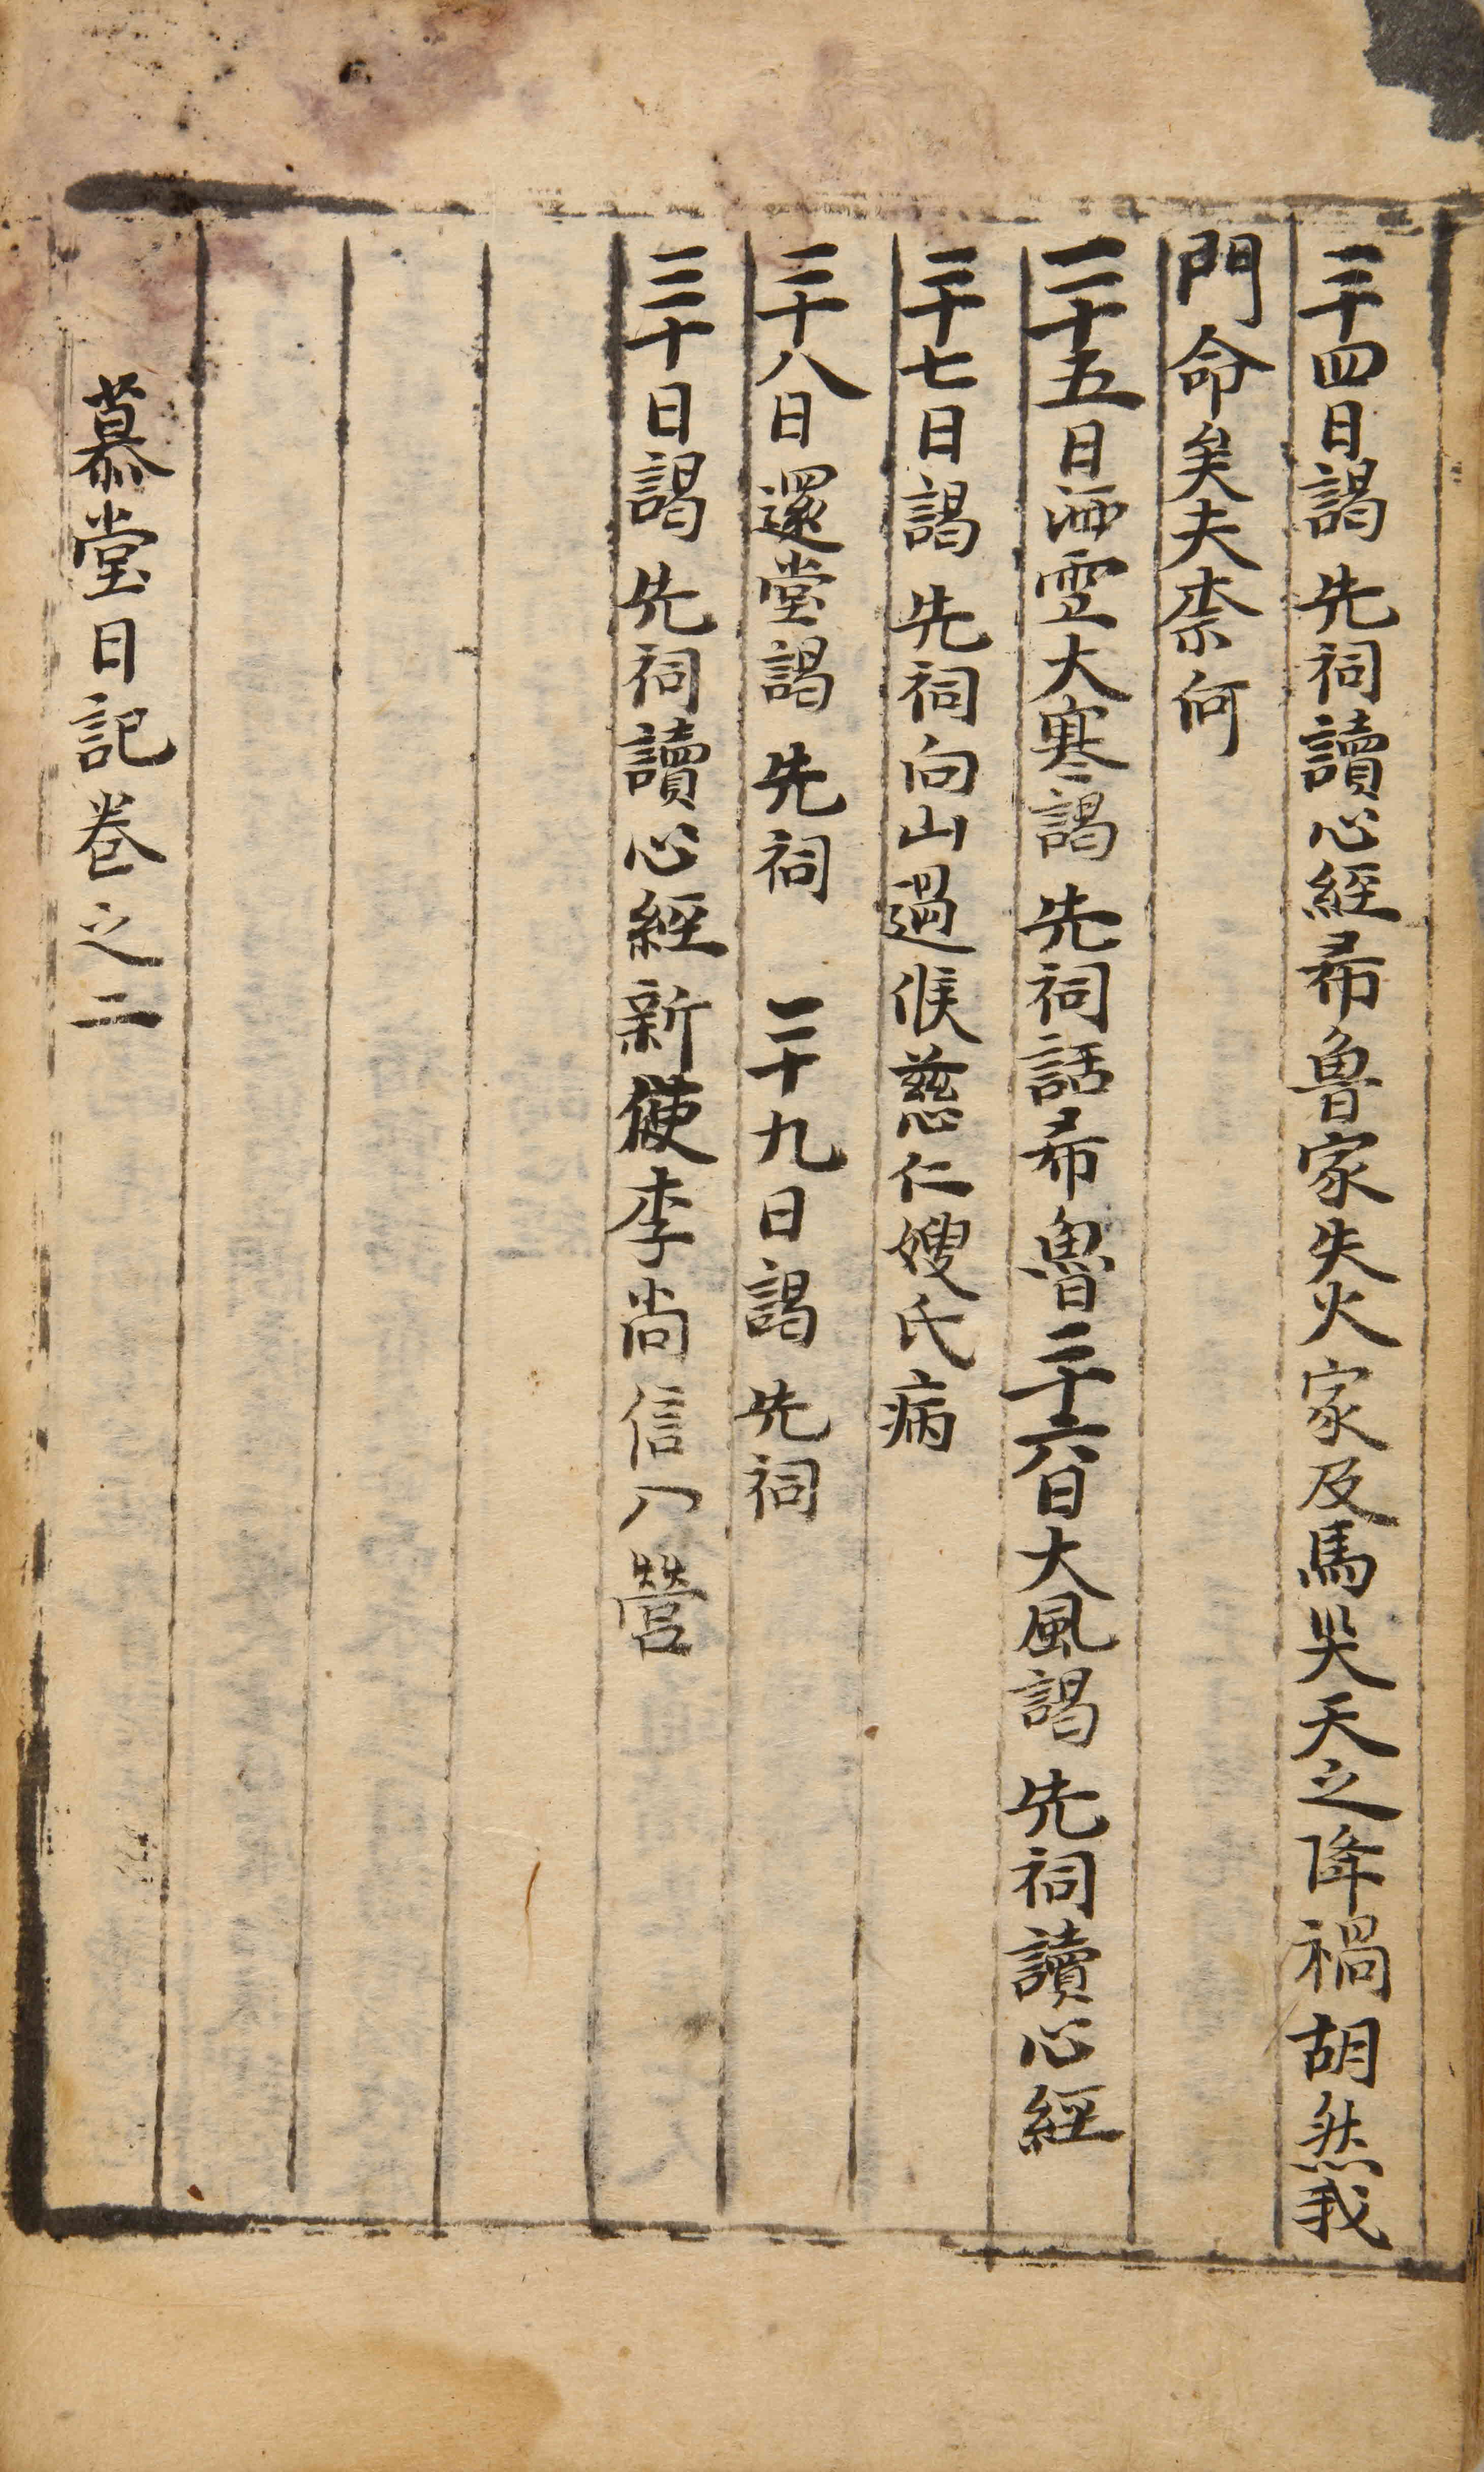 二十四日謁 先祠讀心經希魯家失火家及馬哭天之降禍胡然我
門命矣夫柰何
二十五日洒雪大寒謁 先祠話希魯二十六日大風謁 先祠讀心經
二十七日謁 先祠向山過候慈仁嫂氏病
二十八日還堂謁 先祠 二十九日謁 先祠
三十日謁 先祠讀心經新使李尚信入營
慕堂日記卷之二